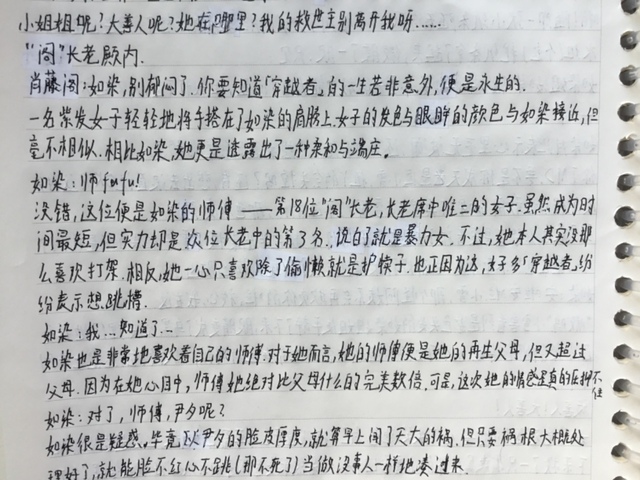 小姐姐呢?大善人呢?她在哪里?我的救世主别离开我呀……
"阁"长老殿内.
肖藤阁:如染,别郁闷了.你要知道「穿越者」的一生若非意外,便是永生的.
一名紫发女子轻轻地将手搭在了如染的肩膀上.女子的发色与眼眸的颜色与如染接近,但
毫不相似.相比如染,她更是透露出了一种柔和与端庄.
如染:师fufu!
没错,这位便是如染的师傅——第18位"阁"长老,长老席中唯二的女子.虽然成为时
间最短,但实力却是众位长老中的第3名.说白了就是暴力女.不过,她本人其实没那
么喜欢打架.相反,她一心只喜欢除了偷懒就是护犊子.也正因为这,好多「穿越者」纷
纷表示想跳槽.
如染:我…知道了…
如染也是非常地喜欢着自己的师傅.对于她而言,她的师傅便是她的再生父母,但又超过
父母.因为在她心目中,师傅她绝对比父母什么的完美数倍.可是,这次她的情感是真的压抑不
住
如染:对了,师傅,尹夕呢?
如染很是疑惑.毕竟以尹夕的脸皮厚度,就算早上闯了天大的祸.但只要祸根大概处
理好了,就能脸不红心不跳(那不死了)当做没事人一样地凑过来.